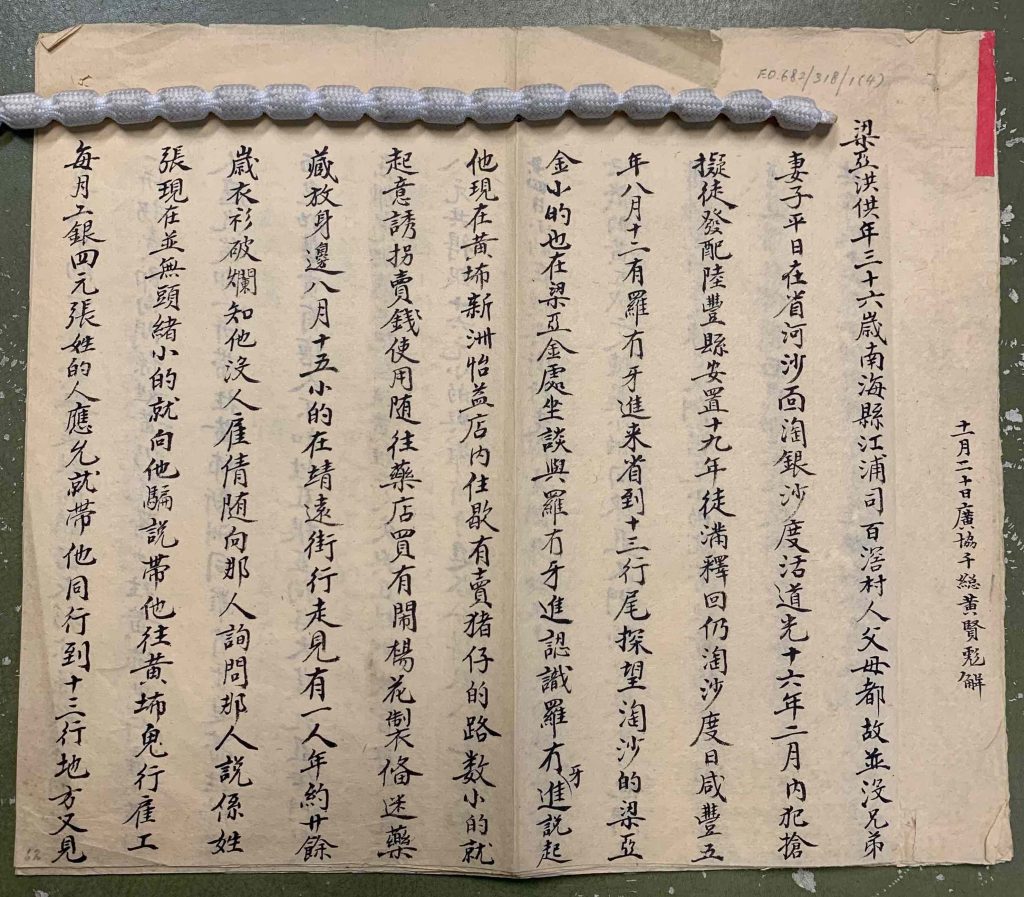 F.O.682/318/1(4)
十一月二十日廣協千總黃賢彪解
梁亞洪供年三十六歲南海縣江浦司百滘村人父母都故並沒兄弟
妻子平日在省河沙面淘銀沙度活道光十六年二月內犯搶
擬徒發配陸豐縣安置十九年徒滿釋回仍淘沙度日咸豐五
年八月十二有羅冇牙進來省到十三行尾探望淘沙的梁亞
金小的也在梁亞金處坐談與羅冇牙進認識羅冇牙進說起
他現在黃埔新洲怡益店內住歇有賣猪仔的路数小的就
起意誘拐賣錢使用随往藥店買有鬧楊花製俻迷藥
藏放身邊八月十五小的在靖遠街行走見有一人年約廿餘
歲衣衫破爛知他沒人雇倩随向那人詢問那人說係姓
張現在並無頭緒小的就向他騙說帶他往黃埔鬼行雇工
每月工銀四元張姓的人應允就帶他同行到十三行地方又見